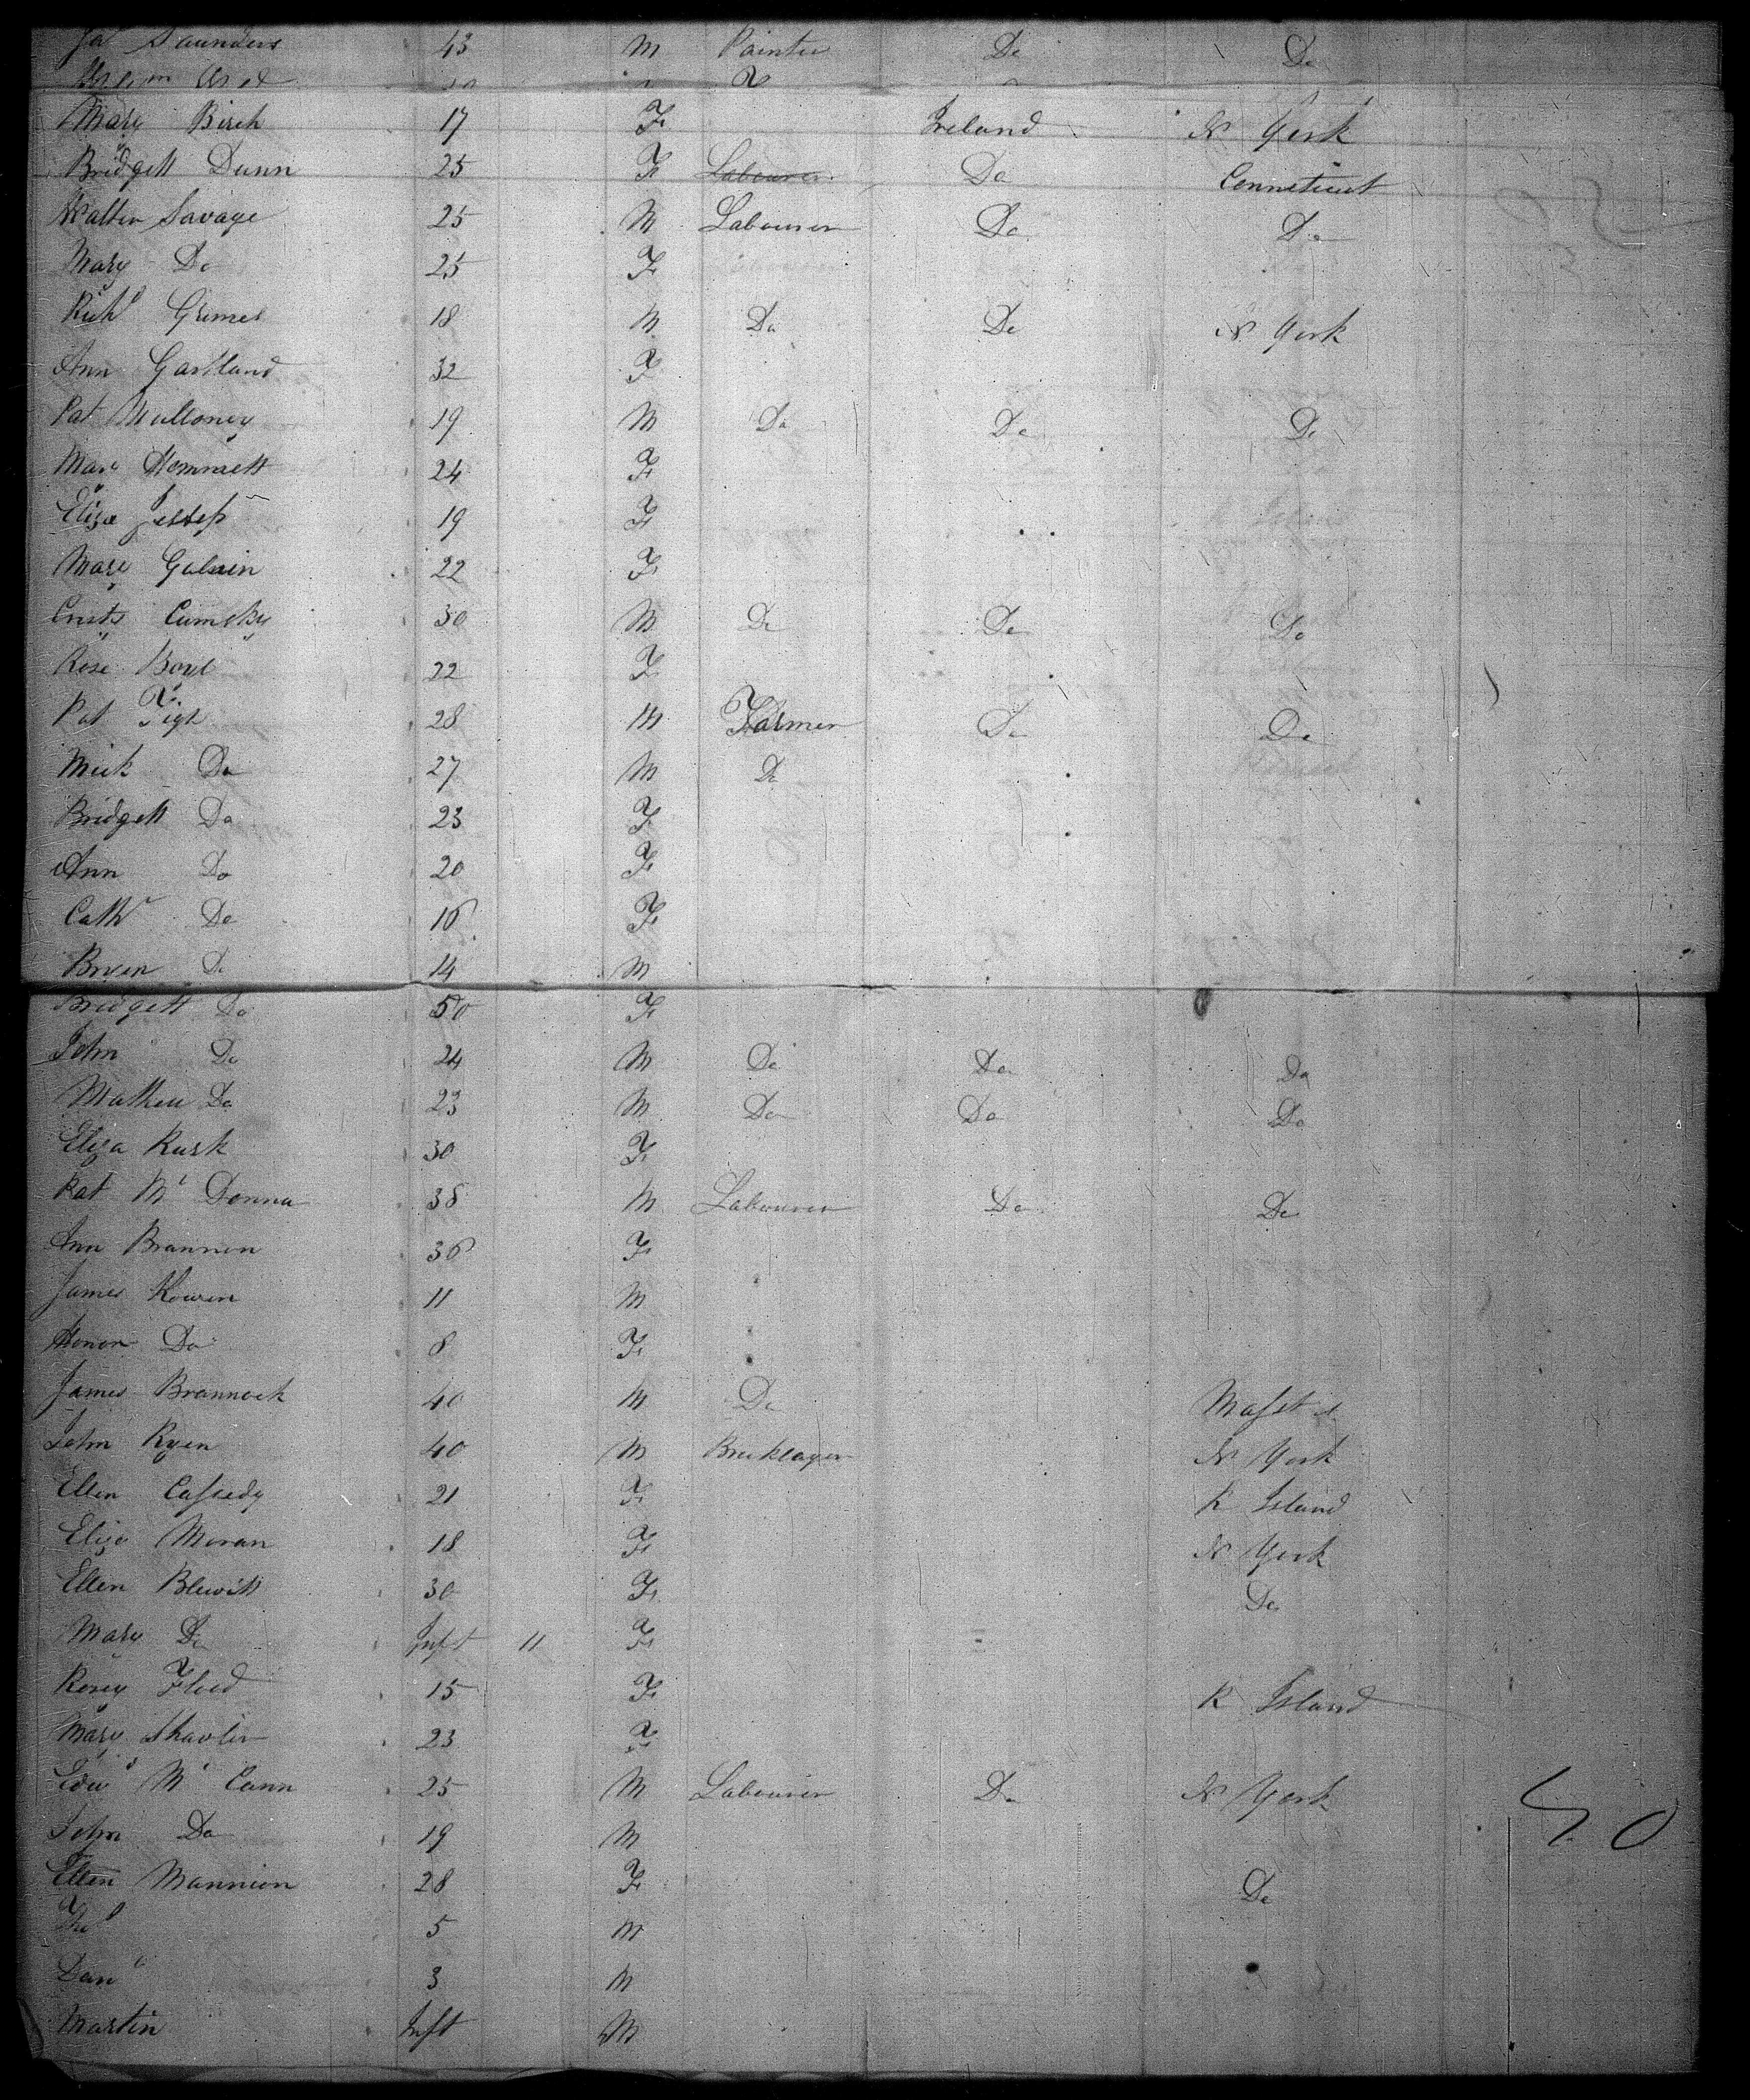 Jas Saunders 43 M Painter Do Do
Mary Birch 17 F Ireland N York
Bridgett Dunn 25 F Labourer Do Conneticut
Walter Savage 25 M Labourer Do Do
Mary Do 25 F
Richd Grimes 18 M Do Do N York
Ann Gartland 32 F
Pat Mulloney 19 M Do Do Do
Mary Hommett 24 F
Eliza Jessep 19 F
Mary Galvin 22 F
Cumsky 30 M Do Do Do
Rose Boyl 22 F
Pat Tigh 28 M Farmer Do Do
Mick Do 27 M Do
Bridgett Do 23 F
Ann Do 20 F
Cathr Do 16 F
Bryen Do 14 M
Bridgett Do 50 F
John Do 24 M Do Do Do
Mathew Do 23 M Do Do Do
Eliza Rusk 30 F
Pat Mc Donna 38 M Labourer Do Do
Ann Brannen 36 F
James Kowen 11 M
Honor Do 8 F
James Brannock 40 M Do Massts
John Ryen 40 M Bricklayer N York
Ellen Cassedy 21 F R Island
Eliza Moran 18 F N York
Ellen Blewitt 30 F Do
Mary Do Inft 11 F
Rosey Flood 15 F R Island
Mary Shavlin 23 F
Edwd Mc Cann 25 M Labourer Do N York
John Do 19 M 50
Ellen Mannion 28 F Do
Thos 5 M
Danl 3 M
Martin Inft M